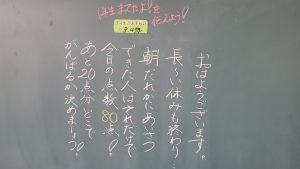 1年生まてたよ!を
伝えよう!
おはようございます。
長〜い休みも終わり…
朝だれかにあいさつ
できた人はそれだけで
今日の点数80点!
あと20点分どこで
がんばるか決めましょう!